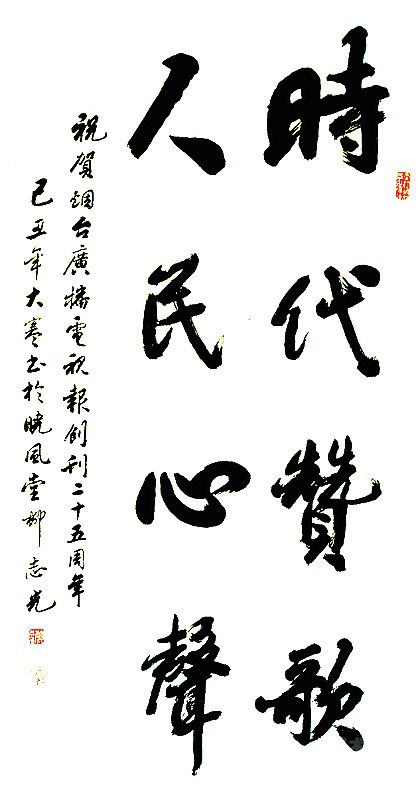 時代贊歌
人民心聲
祝賀烟台廣播電視報創刊二十五周年
己丑年大寒書於曉風堂柳志光